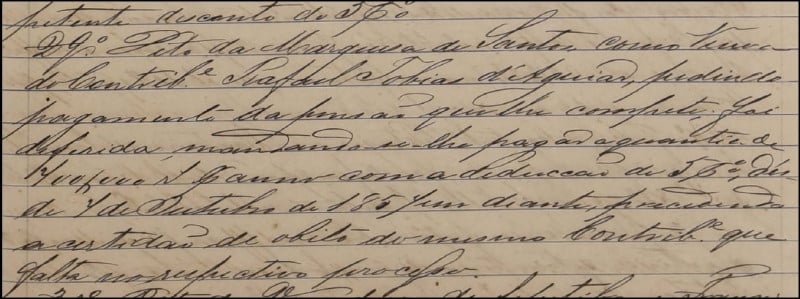 petente desconto do 5º C.º
D.º Pet.º da Marqueza de Santos, como Viuva
do Contrib.e Rafael Tobias d'Aguiar, pedindo
pagamento da pensão que lhe compete; foi
deferida, mandando-se-lhe pagar a quantia de
com a deducção do 5 C.º, des
de 7 de Outubro de 1857 em diante, precedendo
a certidão de obito do mesmo Contrib.e que
falta no respectivo processo.